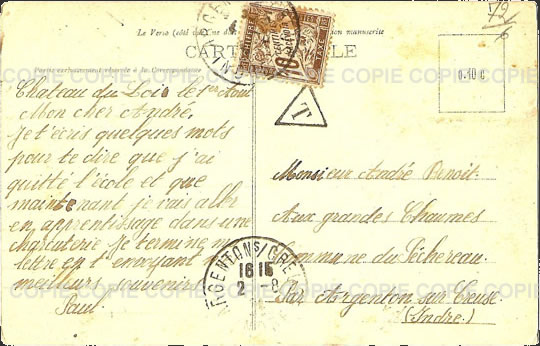 Le Verso
manuscrite
CARTE POSTALE
72/6
0.10 C
T
COPIE COPIE COPIE COPIE COPIE COPIE
Chateau du Loir le 1er Aout
Mon cher André,
Je t'écris quelques mots
pour te dire que j'ai
quitté l'école et que
maintenant je vais aller
en apprentissage dans une
charcuterie Je termine ma
lettre en t'envoyant
meilleurs souvenirs
Paul.
ARGENTON S/ CRE
16 15
2 - 8
Monsieur André Benoit
Aux grandes Chaumes
Commune du Pêchereau
Par Argenton sur Creuse
(Indre)
COPIE COPIE COPIE COPIE COPIE COPIE